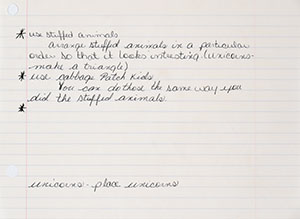 * use stuffed animals
arrange stuffed animals in a particular
order so that it looks intresting. (unicorns-
make a triangle)
* use cabbage Patch Kids
You can do these the same way you
did the stuffed animals
*
unicorns - place unicorns